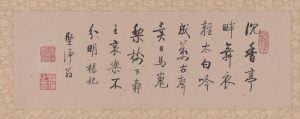 沉香亭
畔舞衣
輕太白吟
成萬古聲
奠日馬嵬
梨樹下尋
王哀樂不
分明楊妃
堅淨翁